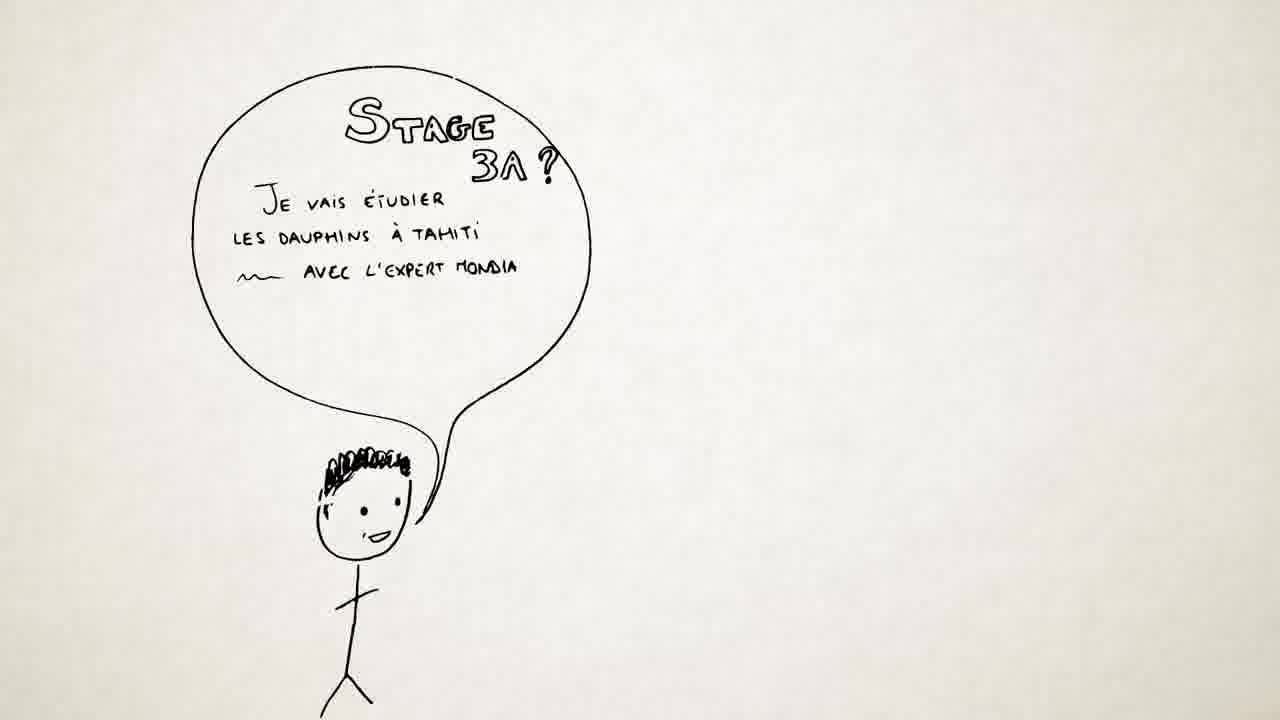 STAGE
3A ?
JE VAIS ÉTUDIER
LES DAUPHINS À TAHITI
AVEC L'EXPERT MONDIA